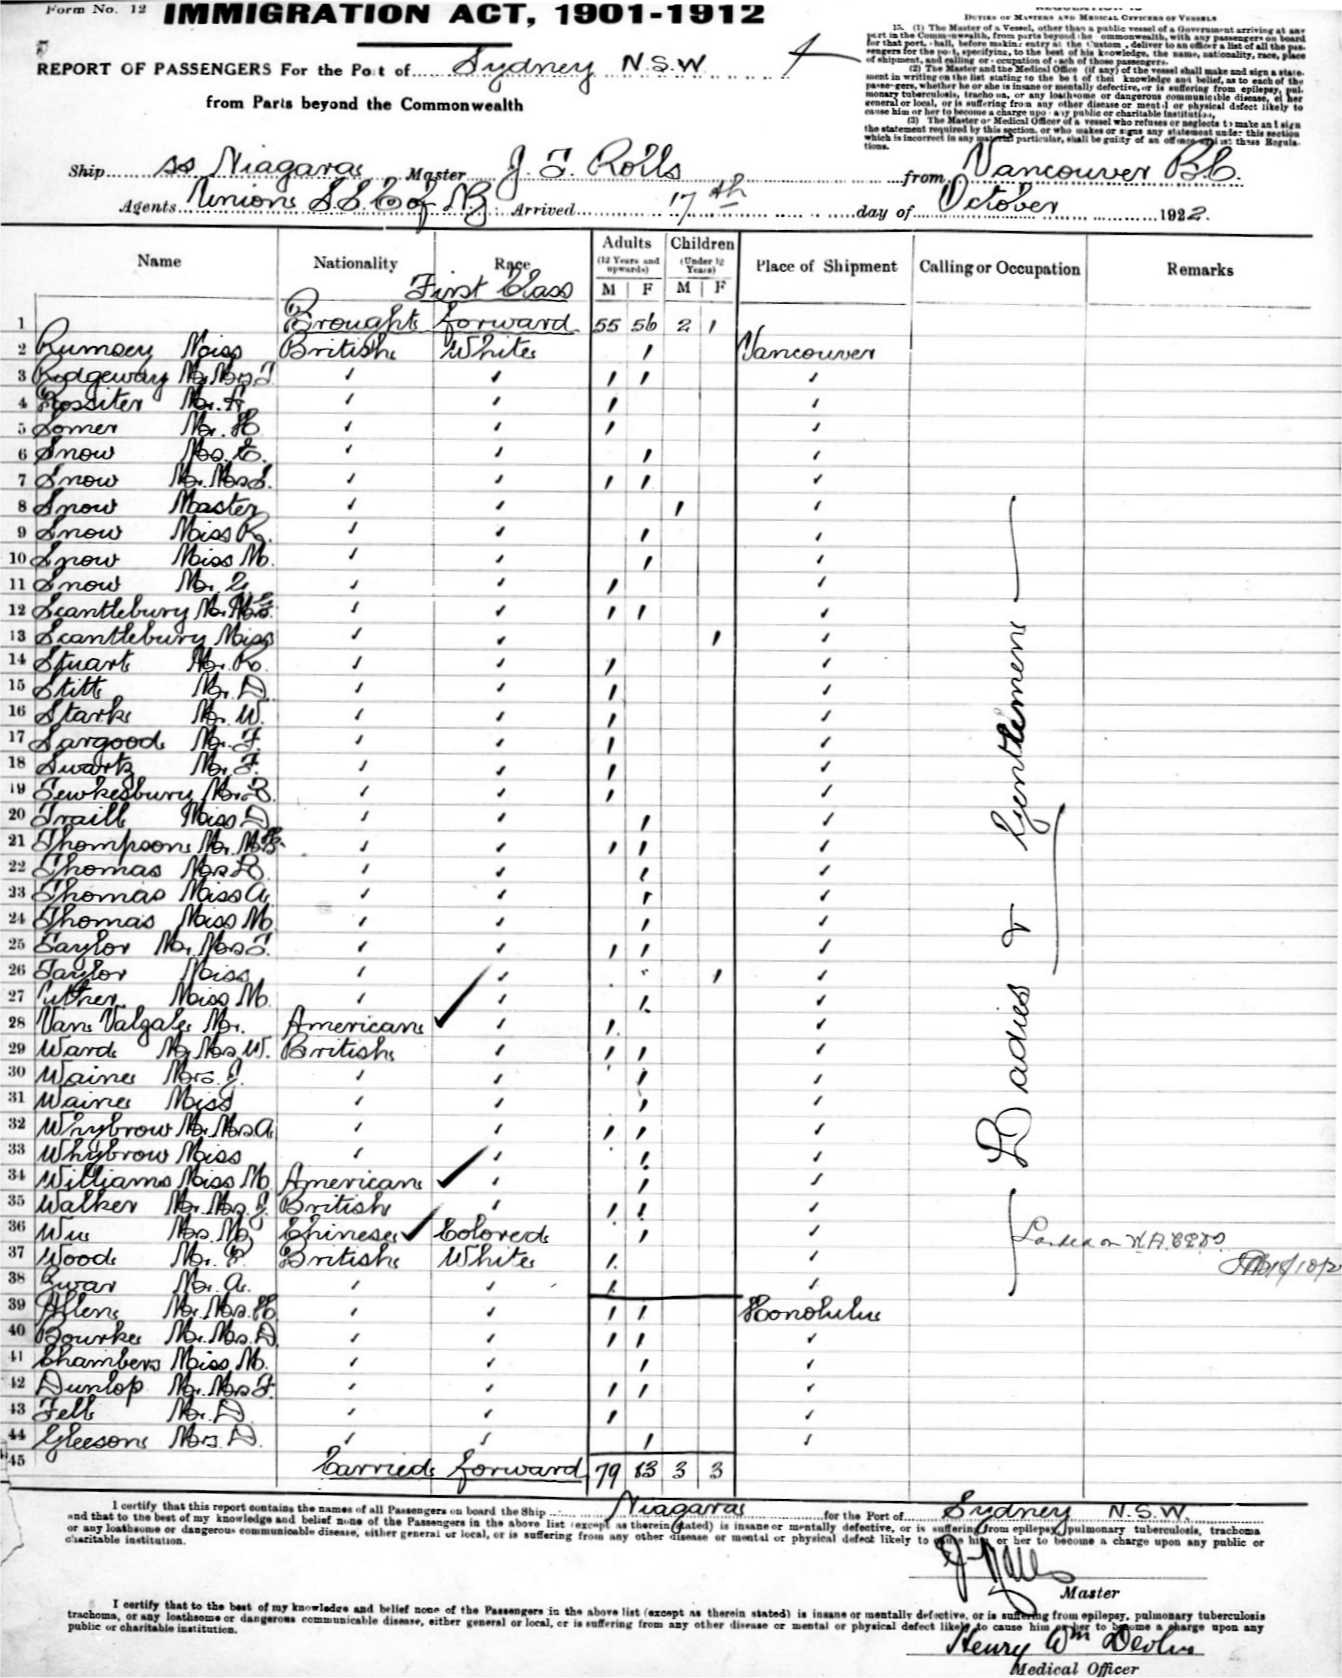 Form No. 12
IMMIGRATION ACT, 1901-1912
REPORT OF PASSENGERS For the Port of Sydney N.S.W.
from Parts beyond the Commonwealth
DUTIES OF MASTERS AND MEDICAL OFFICERS OF VESSELS
15. (1) The Master of a Vessel, other than a public vessel of a Government arriving at any
port in the Commonwealth, from parts beyond the Commonwealth, with any passengers on board
for that port, shall, before making entry at the Customs, deliver to an officer a list of all the pas-
sengers for the port, specifying, to the best of his knowledge, the name, nationality, race, place
of shipment, and calling or occupation of each of those passengers.
(2) The Master and the Medical Office (if any) of the vessel shall make and sign a state-
ment in writing on the list stating to the best of their knowledge and belief, as to each of the
passengers, whether he or she is insane or mentally defective, or is suffering from epilepsy, pul-
monary tuberculosis, trachoma, or any loathsome or dangerous communicable disease, either
general or local, or is suffering from any other disease or mental or physical defect likely to
cause him or her to become a charge upon any public or charitable institution.
(3) The Master or Medical Officer of a vessel who refuses or neglects to make and sign
the statement required by this section, or who makes or signs any statement under this section
which is incorrect in any material particular, shall be guilty of an offence against these Regula-
tions.
Ship ss Niagara Master J. T. Rolls from Vancouver B.C.
Agents Union S.S. Co of NZ Arrived 17th day of October 1922.
Name Nationality Race Adults (12 Years and upwards) M F Children (Under 12 Years) M F Place of Shipment Calling or Occupation Remarks
First Class
1 Brought forward 55 56 2 1
2 Rumsey Miss British White ' Vancouver
3 Ridgeway Mr. Mrs T.
4 Rossiter Mr. A.
5 Somer Mr. H.
6 Snow Mrs. E.
7 Snow Mr. Mrs S.
8 Snow Master
9 Snow Miss R.
10 Snow Miss M.
11 Snow Mr. G
12 Scantlebury Mr. Mrs
13 Scantlebury Miss
14 Stuart Mr. R.
15 Stitt Mr. D.
16 Stark Mr. W.
17 Sargood Mr. F.
18 Swartz Mr. F.
19 Tewkesbury Mr. B.
20 Traill Miss D
21 Thompson Mr. Mrs
22 Thomas Mrs R.
23 Thomas Miss A.
24 Thomas Miss M
25 Taylor Mr. Mrs T.
26 Taylor Miss
27 Miss M.
28 Van Valgale Mr. American
29 Ward Mr Mrs W. British
30 Waine Mrs. J.
31 Waine Miss
32 Whybrow Mr. Mrs A.
33 Whybrow Miss
34 Williams Miss M. American
35 Walker Mr. Mrs. J. British
36 Wu Mrs. M. Chinese Colored
37 Wood Mr. P. British White
38 Mr. A.
39 Allen Mr. Mrs. H. Honolulu
40 Bourke Mr. Mrs. D.
41 Chambers Miss M.
42 Dunlop Mr. Mrs F.
43 Fell Mr. D.
44 Gleeson Mrs. D.
45 Carried forward 79 83 3 3
Ladies & Gentlemen
Landed on
I certify that this report contains the names of all Passengers on board the Ship Niagara for the Port of Sydney N.S.W.
and that to the best of my knowledge and belief none of the Passengers in the above list (except as therein stated) is insane or mentally defective, or is suffering from epilepsy, pulmonary tuberculosis, trachoma
or any loathsome or dangerous communicable disease, either general or local, or is suffering from any other disease or mental or physical defect likely to cause him or her to become a charge upon any public or
charitable institution.
J Rolls
Master
I certify that to the best of my knowledge and belief none of the Passengers in the above list (except as therein stated) is insane or mentally defective, or is suffering from epilepsy, pulmonary tuberculosis
trachoma, or any loathsome or dangerous communicable disease, either general or local, or is suffering from any other disease or mental or physical defect likely to cause him or her to become a charge upon any
public or charitable institution.
Henry Wm Devlin
Medical Officer